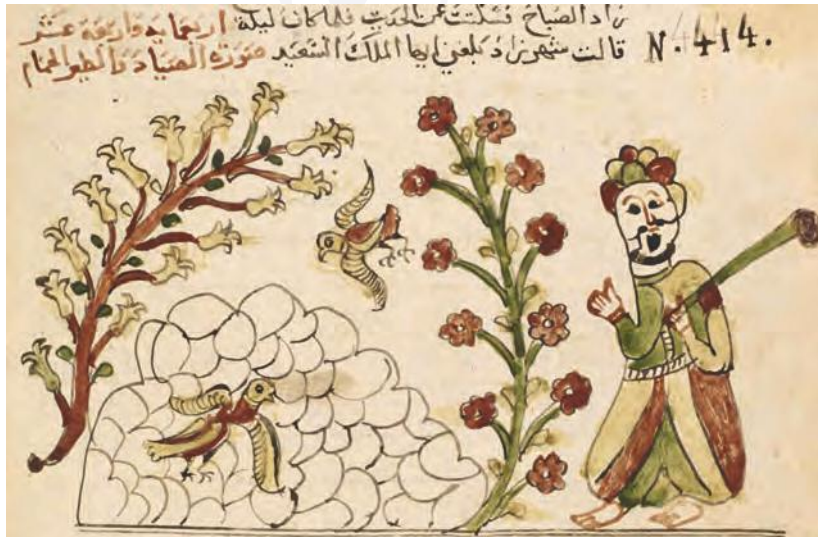 زاد الصباح فسكتت عن الحديث فلما كان ليلة اربعمايه واربعة عشر
N. 414. قالت شهرزاد بلغني ايها الملك السعيد صورة الصياد والطير الحمام